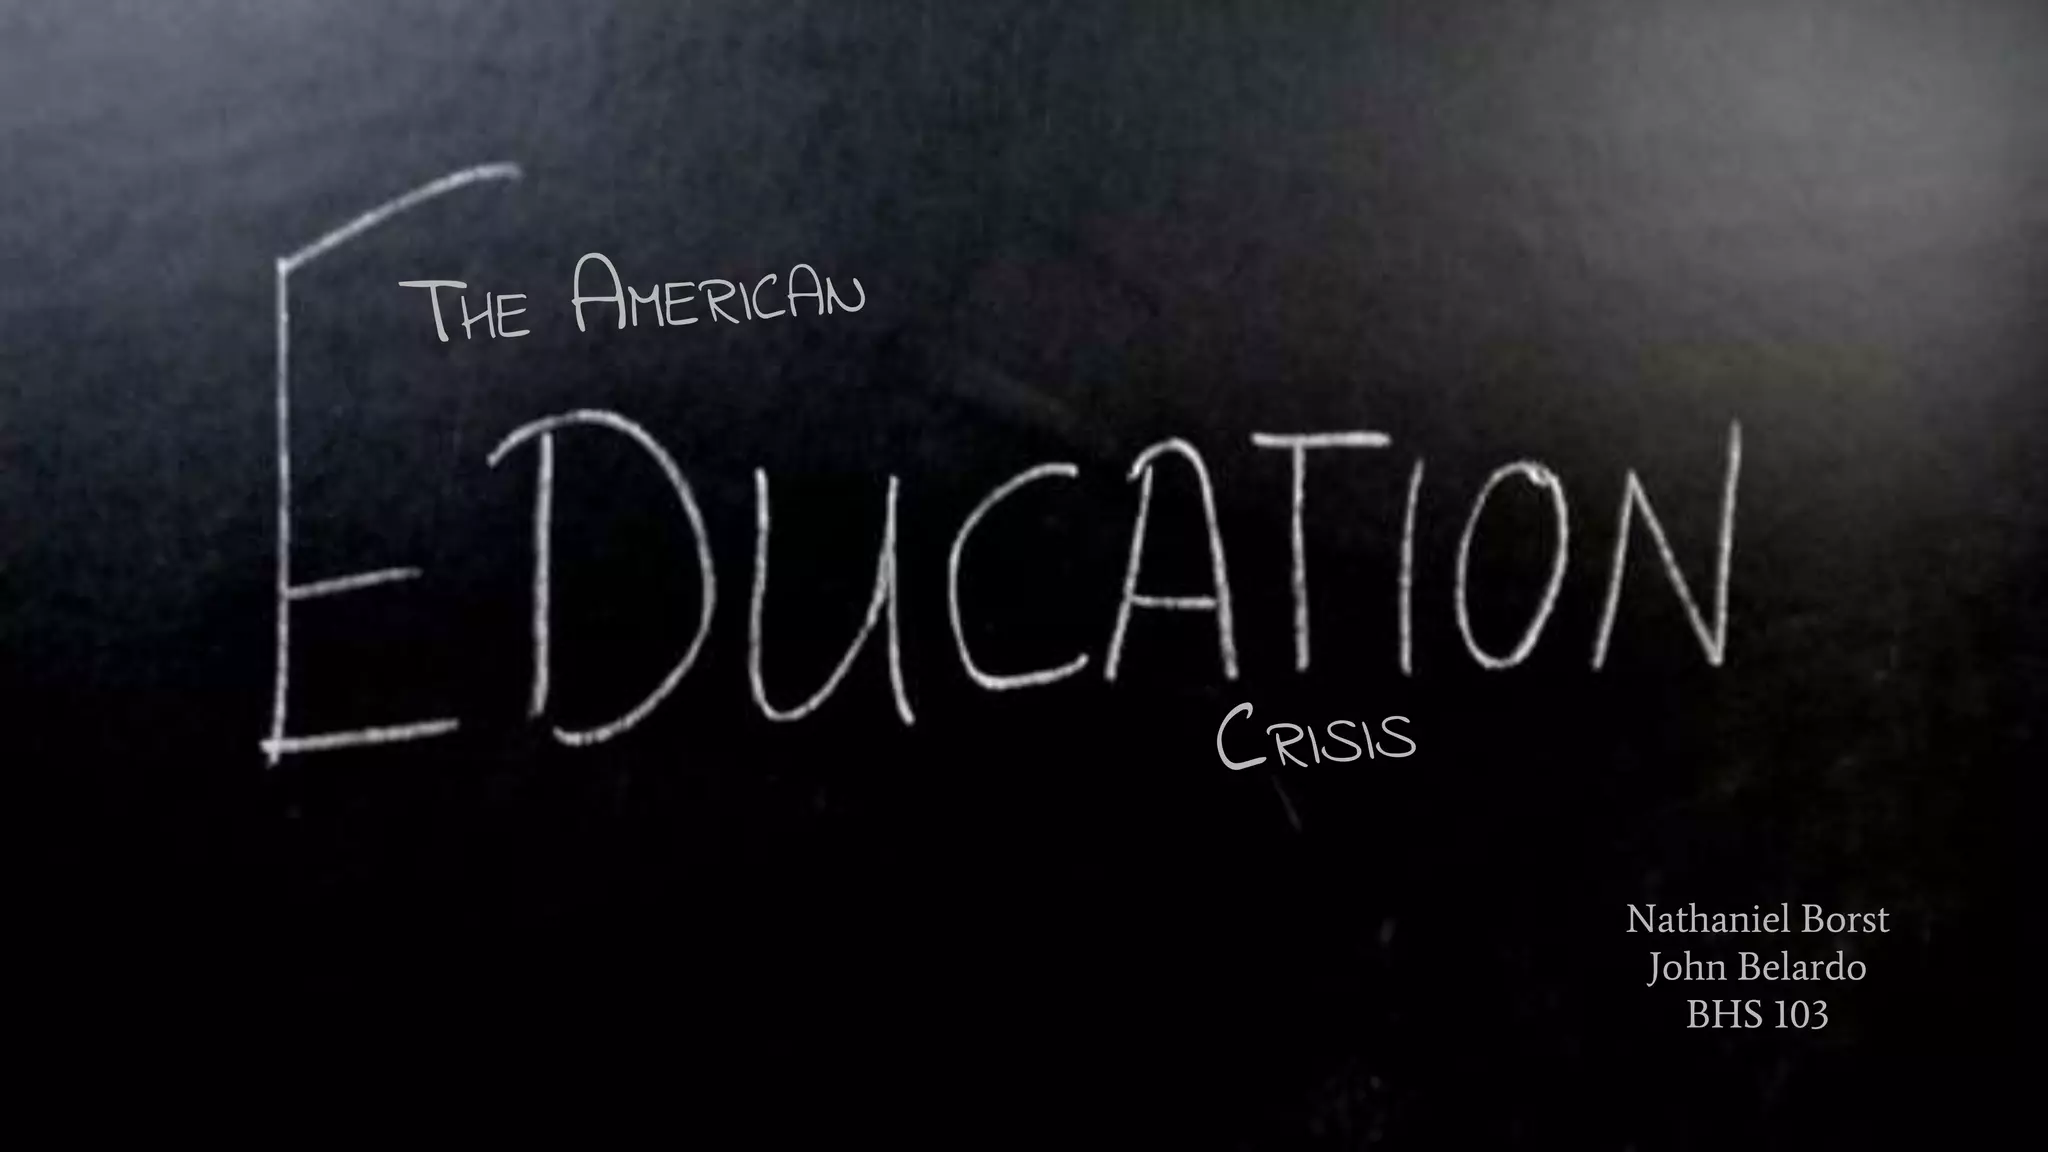 The American
Education
Crisis
Nathaniel Borst
John Belardo
BHS 103